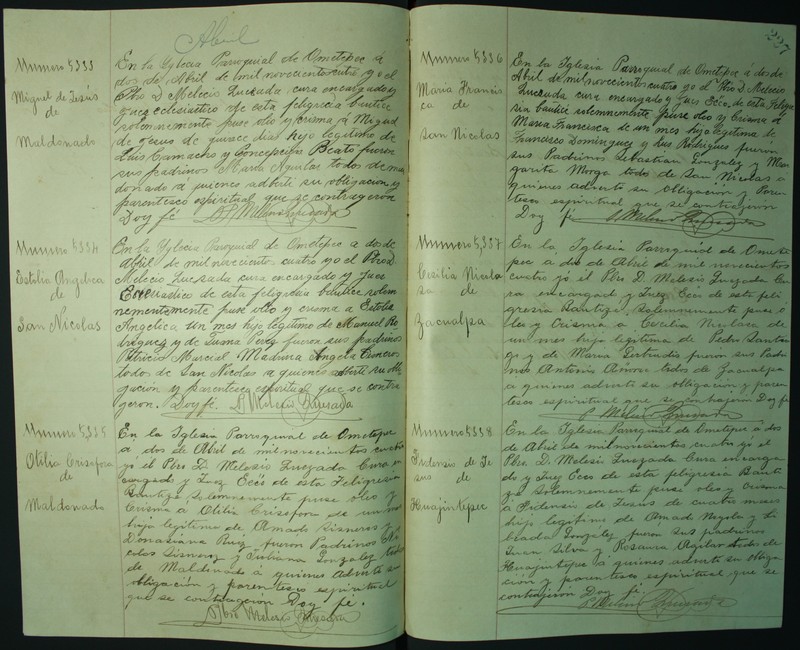 Abril
Numero 5333
Miguel de Jesús
de
Maldonado
En la Yglecia Parroquial de Ometepec á
dos de Abril de mil novecientos cutro yo el
Pbro D Melecio Luezada cura encargado y
juez eclesiastico de esta feligrecia bautice
solemnemente puse olio y crisma á Miguel
de Jesus de quince dias hijo legitimo de
Luis Camacho y Concepcion Beato fueron
sus padrinos Maria Aguilar todos de mal
donado a quienes adberti su obligacion y
parentesco espiritual que se contrageron
Doy fé
Numero 5334
Estolia Angelica
de
San Nicolas
En la Yglecia Parroquial de Ometepec a dos de
Abril de mil novecientos cuatro yo el Pbro D.
Melecio Luezada cura encargado y juez
Eclesiastico de esta feligrecia bautice solem
nemente puse olio y crisma a Estolia
Angelica un mes hijo legitimo de Manuel Ro
driguez y de Luisa Perez fueron sus padrinos
Patricio Marcial Madrina Angela
todos de San Nicolas a quienes adberti su obli
gacion y parentesco espiritual que se contra
geron. Doy fé.
Numero 5335
Otilia Crisefora
de
Maldonado
En la Iglesia Parroquial de Ometepec
a dos de Abril de mil novecientos cuatro
yó el Pbro. D. Melesio Luezada Cura en
cargado y Juez Ecco de esta Feligresia
Bautizé Solemnemente puse oleo y
Crisma a Otilia Crisefora de un mes
hija legitima de Amado Sisneros y
Donaciana Ruiz fueron Padrinos Ni
colas Sisneros y Juliana Gonzalez todos
de Maldonado á quienes Adverti su
obligación y parentesco espiritual
que se contrageron Doy fé.
237
Numero 5336
Maria Francis
ca de
San Nicolas
En la Iglesia Parroquial de Ometepec á dos de
Abril de mil novecientos cuatro yo el Pbro D. Melecio
Luezada cura encargado y Juez Ecco, de esta Felige
sia bautice solemnemente puse olio y Crisma á
Maria Francisca de un mes hija legitima de
Francisco Dominguez y Luz Rodriguez fueron
sus Padrinos Sebastian Gonzalez y Mar
garita Morga todo de San Nicolas a
quienes adverti su Obligacion y Paren
tesco espiritual que se contrageron
Doy fé
Numero 5,337
Cecilia Nicola
sa de
Zacualpa
En la Iglesia Parroquial de Omete
pec a dos de Abril de mil novecientos
cuatro yó el Pbro. D. Melesio Luezada Cu
ra encargad y Juez Ecco de esta feli
gresia Bautizé, Solemnemente puse ó
leo y Crisma a Cecilia Nicolasa de
un mes hija legitima de Pedro Santia
go y de Maria Gertrudis fueron sus Padri
nos Antonia todos de Zacualpa
a quienes adverti su obligacion y paren
tesco espiritual que se contrageron Doy fé
Numero 5338
de Je
sus de
Huajintepec
En la Iglesia Parroquial de Ometepec á dos
de Abril de mil novecientos cuatro yó el
Pbro. D. Melesio Luezada Cura encarga
do y Juez Ecco de esta feligresia Bauti
zé Solemnemente puse oleo y Crisma
á de Jesus de cuatro meses
hijo legitimo de Amado y Li
brada Gonzalez fueron sus padrinos
Juan Silva y Rosaura Aguilar todos de
Huajintepec a quienes adverti su obliga
cion y parentesco espiritual que se
contrageron Doy fé.